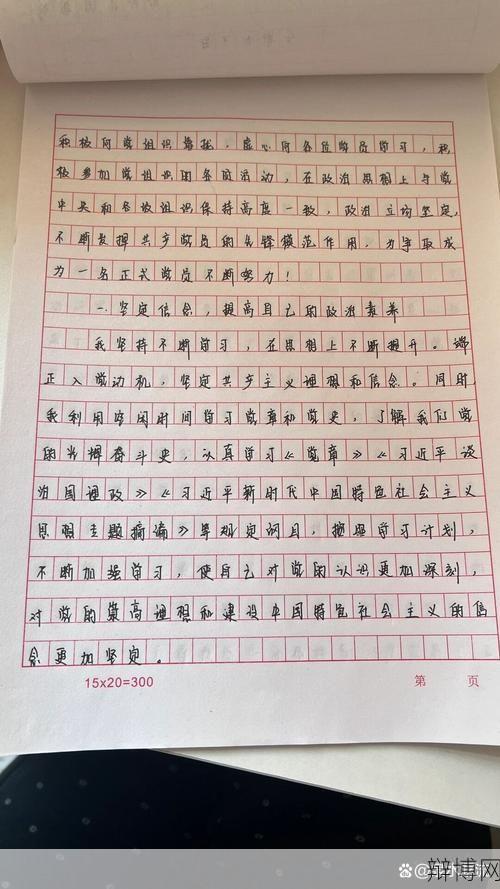 积极向党组织靠拢，虚心向各位党员学习，积
极参加党组织的各项活动，在政治思想上与党
中央和各级组织保持高度一致，政治立场坚定，
不断发挥共产党员的先锋模范作用，力争取成
为一名正式党员不断努力！
一.坚定信念，提高自己的政治素养
我坚持不断学习，在思想上不断提升。端
正入党动机，坚定共产主义理想和信念。同时，
我利用空闲时间学习党章和党史，了解我们党
的光辉奋斗史，认真学习《党章》《习近平谈
治国理政》《习近平新时代中国特色社会主义
思想专题摘编》等规定调目，按照学习计划，
不断加强学习，使自己对党的认识更加深刻，
对党的崇高理想和建设中国特色社会主义的信
念更加坚定。
15x20=300
第 页
辩博网